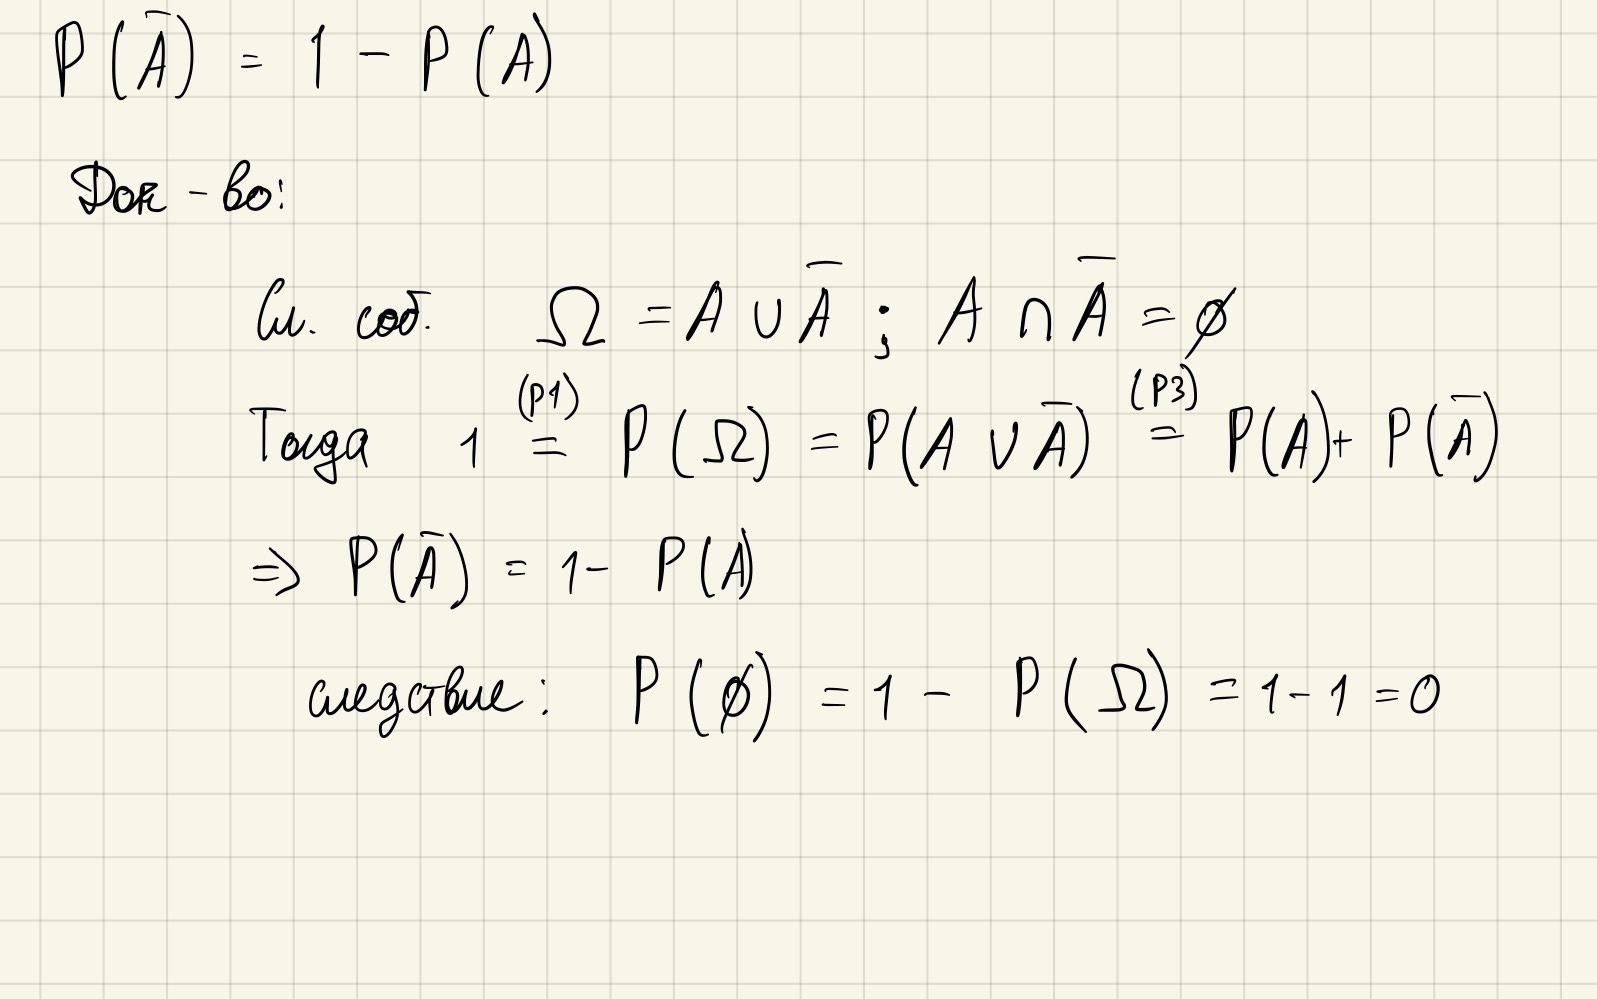 P(Ā) = 1 - P(A)
Док-во:
Сл. соб. Ω = A ∪ Ā ; A ∩ Ā = ∅
Тогда 1 (P1)= P(Ω) = P(A ∪ Ā) (P3)= P(A) + P(Ā)
⇒ P(Ā) = 1 - P(A)
следствие: P(∅) = 1 - P(Ω) = 1 - 1 = 0